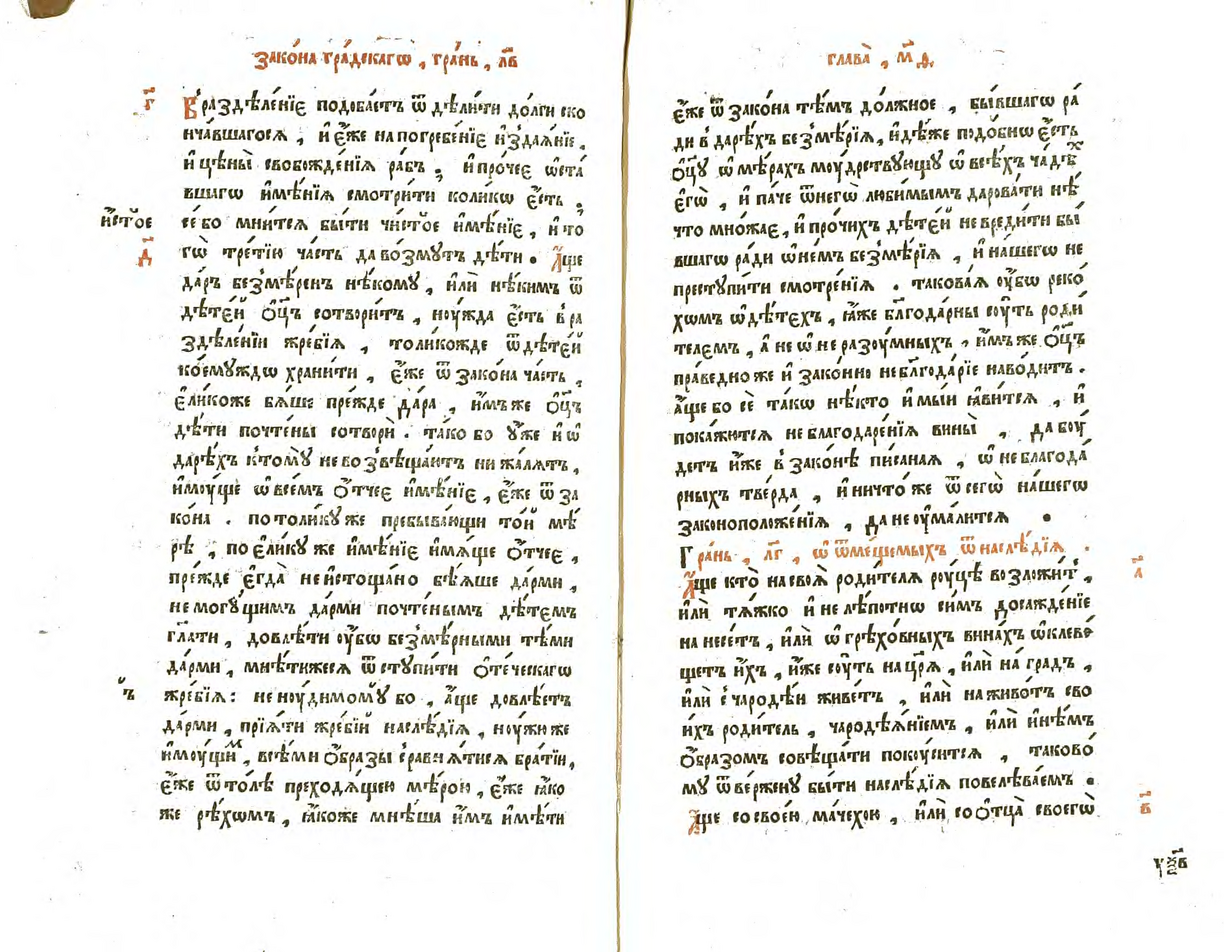 Зако́на гра́дскагѡ , гра́нь , л҃в
г҃
В̾ раздѣле́нїе подоба́етъ ѿ дѣли́ти до́лги ско
нча́вшагося , и҆ є҆́же на погребе́нїе и҆здая́нїе ,
и҆ цѣны̀ свобожде́нїя ра́бъ , и҆ про́чее ѡ҆ста́
вшагѡ и҆мѣ́нїя смотри́ти коли́кѡ є҆́сть ,
и҆́стое
се́ бо мни́тся бы́ти чи́стое и҆мѣ́нїе , и҆ то
д҃
гѡ̀ тре́тїю ча́сть да во́змутъ дѣ́ти . А҆́ще
да́ръ безмѣ́ренъ нѣ́кому , и҆лѝ нѣ́кимъ ѿ
дѣте́й ѻ҆ц҃ъ сотвори́тъ , ноу́жда є҆́сть в̾ ра
здѣле́нїи жре́бїя , толи́кожде ѿ дѣте́й
кое́муждѡ храни́ти , є҆́же ѿ зако́на ча́сть ,
є҆ли́коже бя́ше пре́жде да́ра , и҆́мъ же ѻ҆ц҃ъ
дѣ́ти почте́ны сотворѝ . та́ко бо у҆́же и҆ ѡ҆
да́рѣхъ к̾ тому̀ не возвѣща́ютъ ни жа́лятъ ,
и҆моу́ще ѡ҆ все́мъ ѻ҆́тчее и҆мѣ́нїе , є҆́же ѿ за
ко́на . по толи́ку же пребыва́ющи то́й мѣ́
рѣ , по є҆ли́ку же и҆мѣ́нїе и҆мя́ще ѻ҆́тчее ,
пре́жде є҆гда̀ не и҆стощано̀ бѣ́яше да́рми ,
не могу́щимъ да́рми почте́нымъ дѣ́темъ
гл҃ати , довлѣ́ти оу҆́бѡ безмѣ́рными тѣ́ми
да́рми , мнѣ́тижеся ѿступи́ти ѻ҆те́ческагѡ
ъ
жре́бїя : не ноуди́мому бо , а҆́ще довлѣ́етъ
да́рми , прїя́ти жре́бїй наслѣ́дїя , ноу́жи же
и҆моу́щим , все́ми ѻ҆́бразы сравня́тися бра́тїи ,
є҆́же ѿто́лѣ преходя́щею мѣ́рою , є҆́же ꙗ҆́ко
же рѣ́хѡмъ , ꙗ҆́коже мнѣ́ша и҆́мъ и҆мѣ́ти
глава̀ , м҃д
є҆́же ѿ зако́на тѣ́мъ до́лжное , бы́вшагѡ ра́
ди в̾ да́рѣхъ безмѣ́рїя , и҆дѣ́же подо́бнѡ є҆́сть
ѻ҆ц҃у ѡ҆ мѣ́рахъ моу́дрствующу ѡ҆ всѣ́хъ ча́дѣх
є҆гѡ̀ , и҆ па́че ѿ негѡ̀ люби́мымъ дарова́ти нѣ́
что мно́жае , и҆ про́чихъ дѣте́й не вреди́ти бы́
вшагѡ ра́ди ѡ҆ не́мъ безмѣ́рїя , и҆ на́шегѡ не
преступи́ти смотре́нїя . такова́я оу҆́бѡ реко́
хѡмъ ѡ҆ дѣ́техъ , ꙗ҆́же бл҃года́рны соу́ть роди́
телемъ , а҆ не ѡ҆ неразоу́мныхъ , и҆́мъ же ѻ҆ц҃ъ
пра́ведно же и҆ зако́нно небл҃года́рїе наво́дитъ .
а҆́ще бо сѐ та́кѡ нѣ́кто и҆мы́й ꙗ҆ви́тся , и҆
пока́жются неблагодаре́нїя вины̀ , да боу́
детъ и҆́же в̾ зако́нѣ пи́саная , ѡ҆ неблагода́
рныхъ тве́рда , и҆ ничто́ же ѿ сегѡ̀ на́шегѡ
законоположе́нїя , да не оу҆мали́тся .
Гра́нь , л҃г , ѡ҆ ѿме́щемыхъ ѿ наслѣ́дїя .
а҃
А҆́ще кто̀ на своя̀ роди́теля ро́уцѣ возложи́т ,
и҆лѝ тя́жко и҆ не лѣ́потнѡ си́мъ досажде́нїе
нанесе́тъ , и҆лѝ ѡ҆ грѣхо́вныхъ вина́хъ ѡ҆клеве́
щетъ и҆́хъ , и҆́же соу́ть на цр҃я̀ , и҆лѝ на гра́дъ ,
и҆лѝ с̾ чародѣ́и живе́тъ , и҆лѝ на живо́тъ сво
и҆́хъ роди́тель , чародѣ́янїемъ , и҆лѝ и҆нѣ́мъ
ѻ҆́бразомъ совѣща́ти покоу́сится , таково́
му ѿве́ржену бы́ти наслѣ́дїя повелѣва́емъ .
в҃
А҆́ще со свое́ю ма́чехою , и҆лѝ со ѻ҆тца̀ своегѡ̀
у҃ѯв